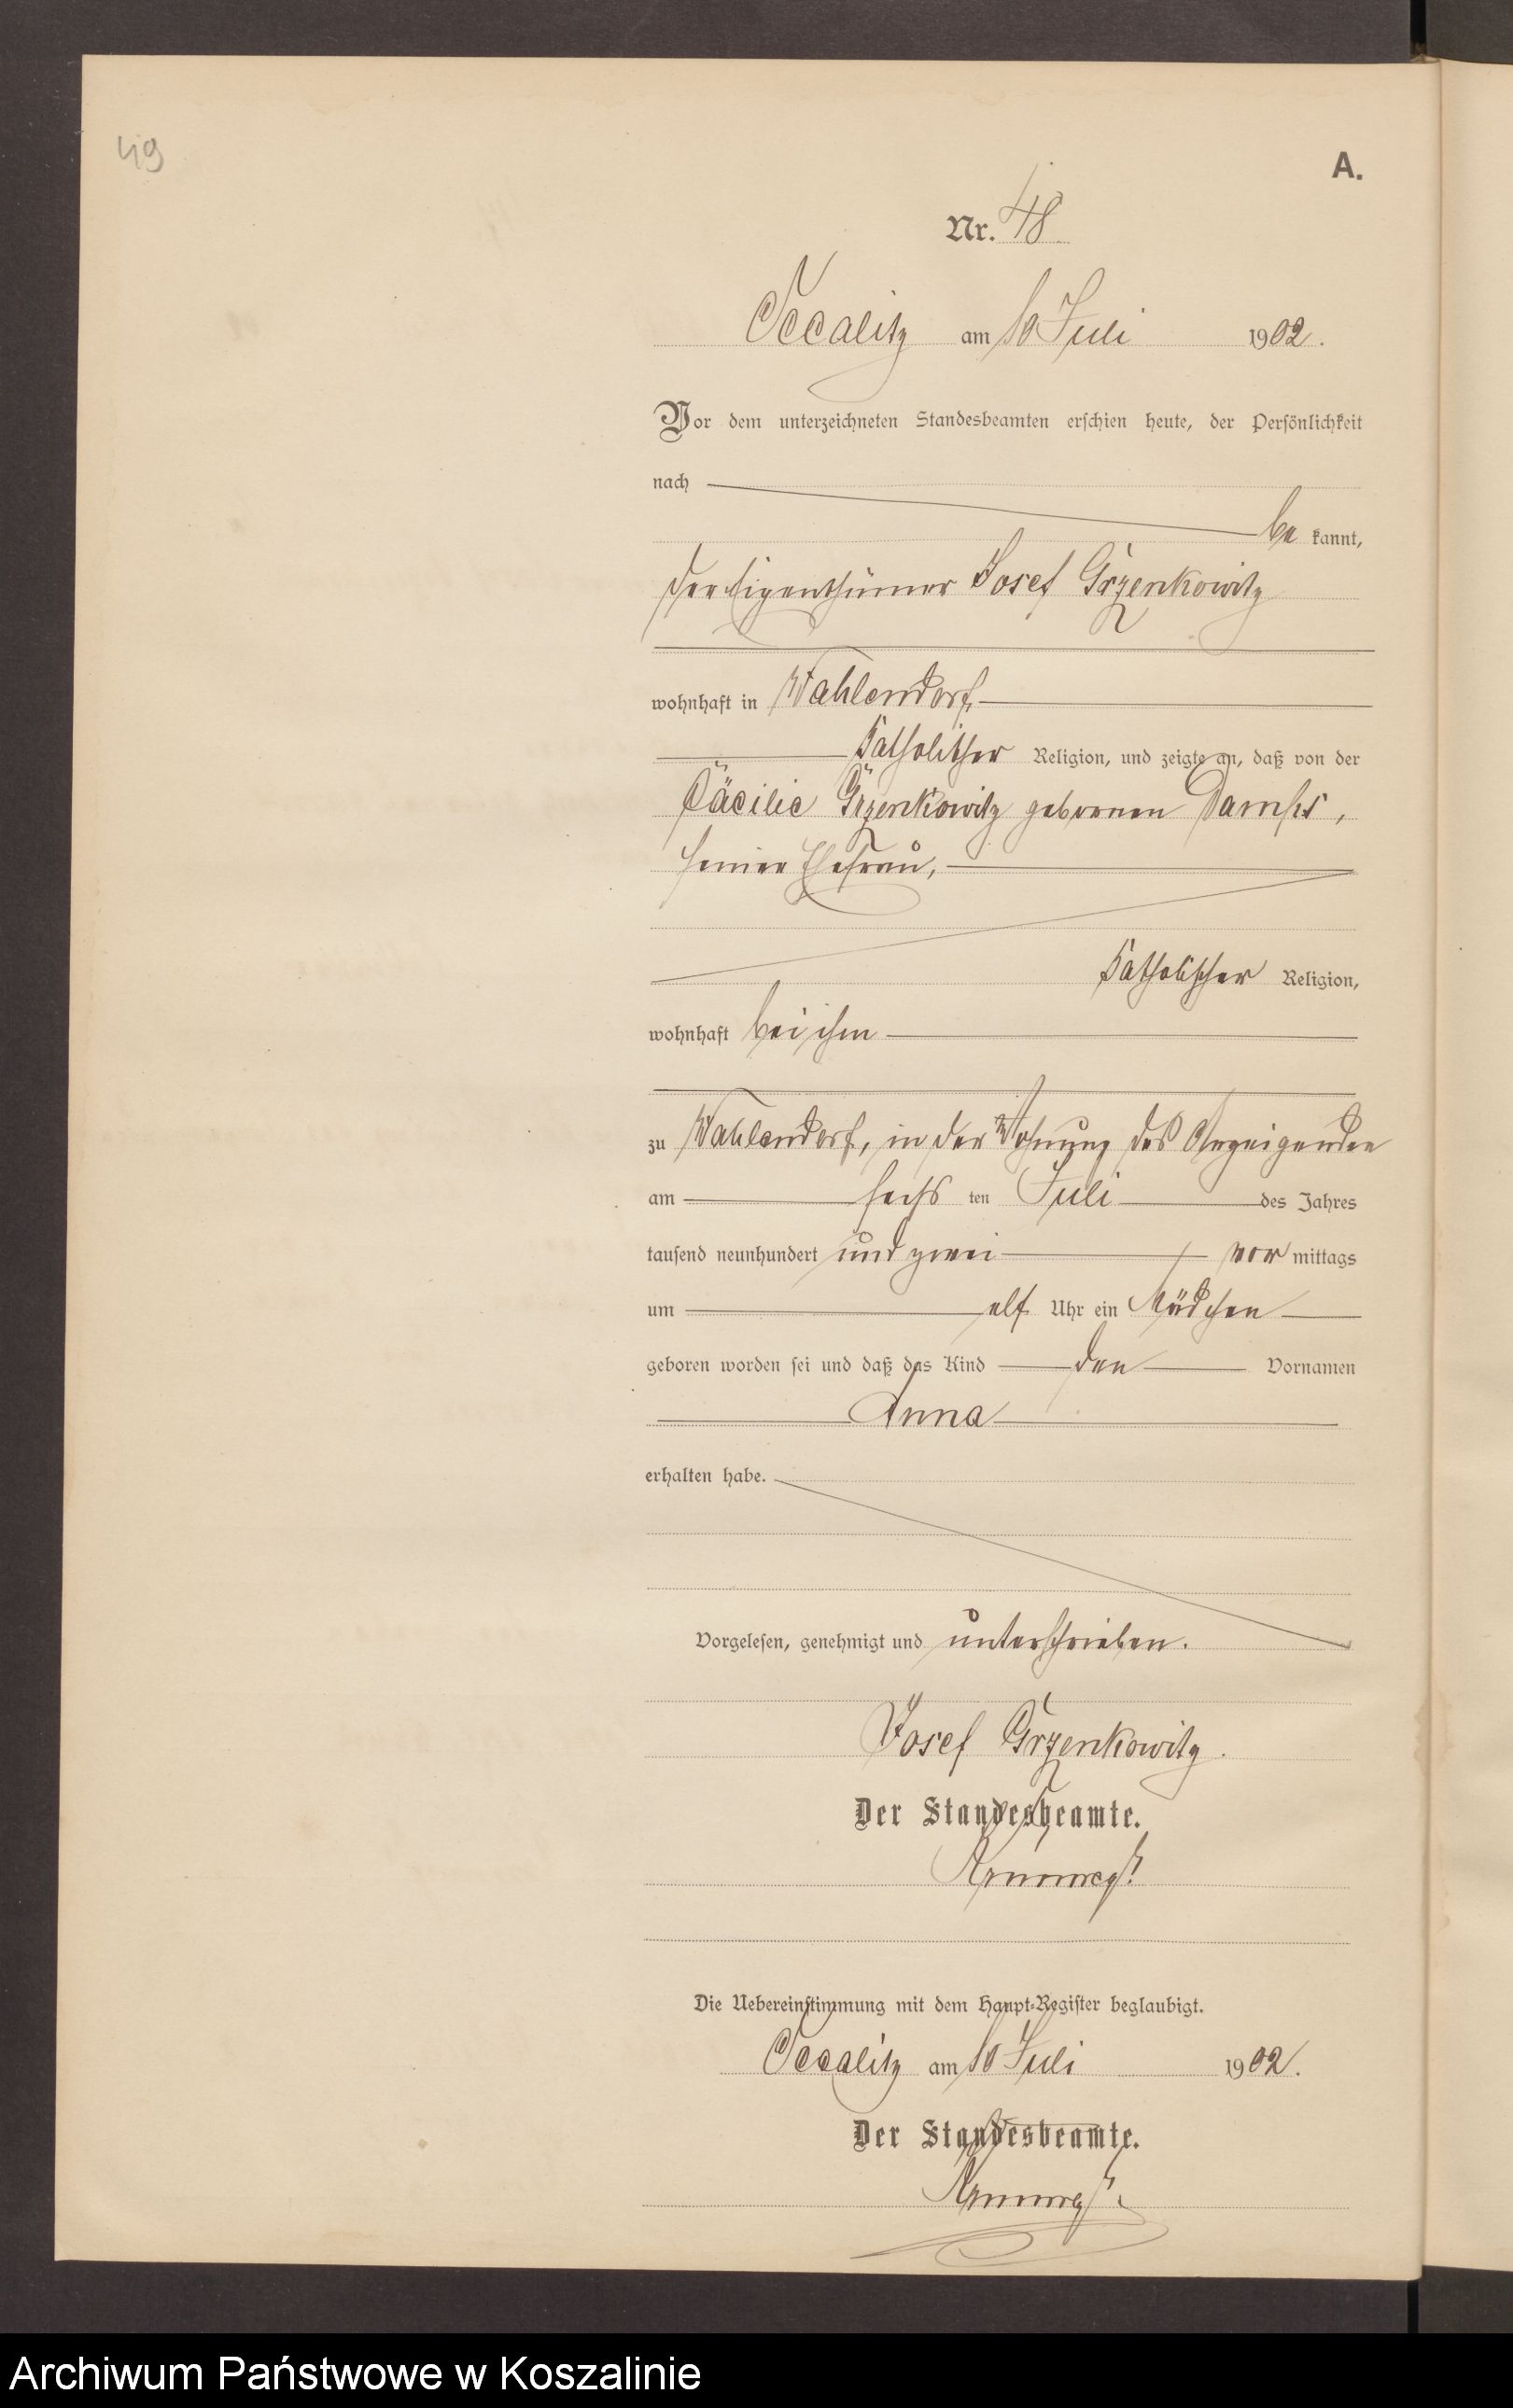 49
A.
Nr. 48
Occalitz am 10 Juli 1902.
Vor dem unterzeichneten Standesbeamten erschien heute, der Persönlichkeit
nach
be kannt,
der Eigenthümer Josef Grzenkowitz
wohnhaft in Wahlendorf
katholischer Religion, und zeigte an, daß von der
Cäcilie Grzenkowitz geborenen Damps,
seiner Ehefrau,
katholischer Religion,
wohnhaft bei ihm
zu Wahlendorf, in der Wohnung des Anzeigenden
am sechs ten Juli des Jahres
tausend neunhundert und zwei vor mittags
um elf Uhr ein Mädchen
geboren worden sei und daß das Kind den Vornamen
Anna
erhalten habe.
Vorgelesen, genehmigt und unterschrieben.
Josef Grzenkowitz.
Der Standesbeamte.
Die Uebereinstimmung mit dem Haupt-Register beglaubigt.
Occalitz am 10 Juli 1902.
Der Standesbeamte.
Archiwum Państwowe w Koszalinie